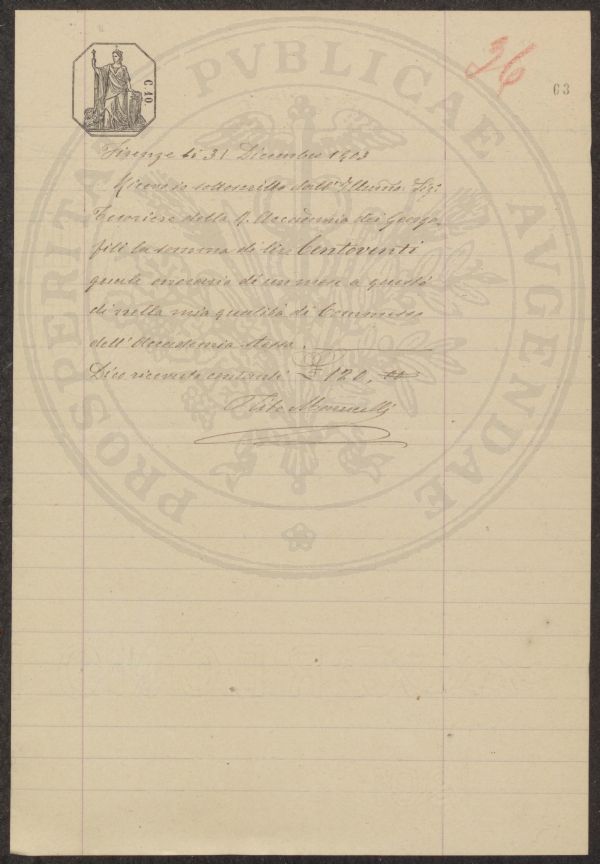 C. 10
36
63
PROSPERITATI PVBLICAE AVGENDAE
Firenze li 31 Dicembre 1903
Ricevo io sottoscritto dall' Illustrmo. Sig:
Tesoriere della R. Accademia dei Georgo-
fili la somma di lire Centoventi
quale onorario di un mese a questo
dì nella mia qualità di Commesso
dell' Accademia stessa.
Dico ricevute contanti £ 120,